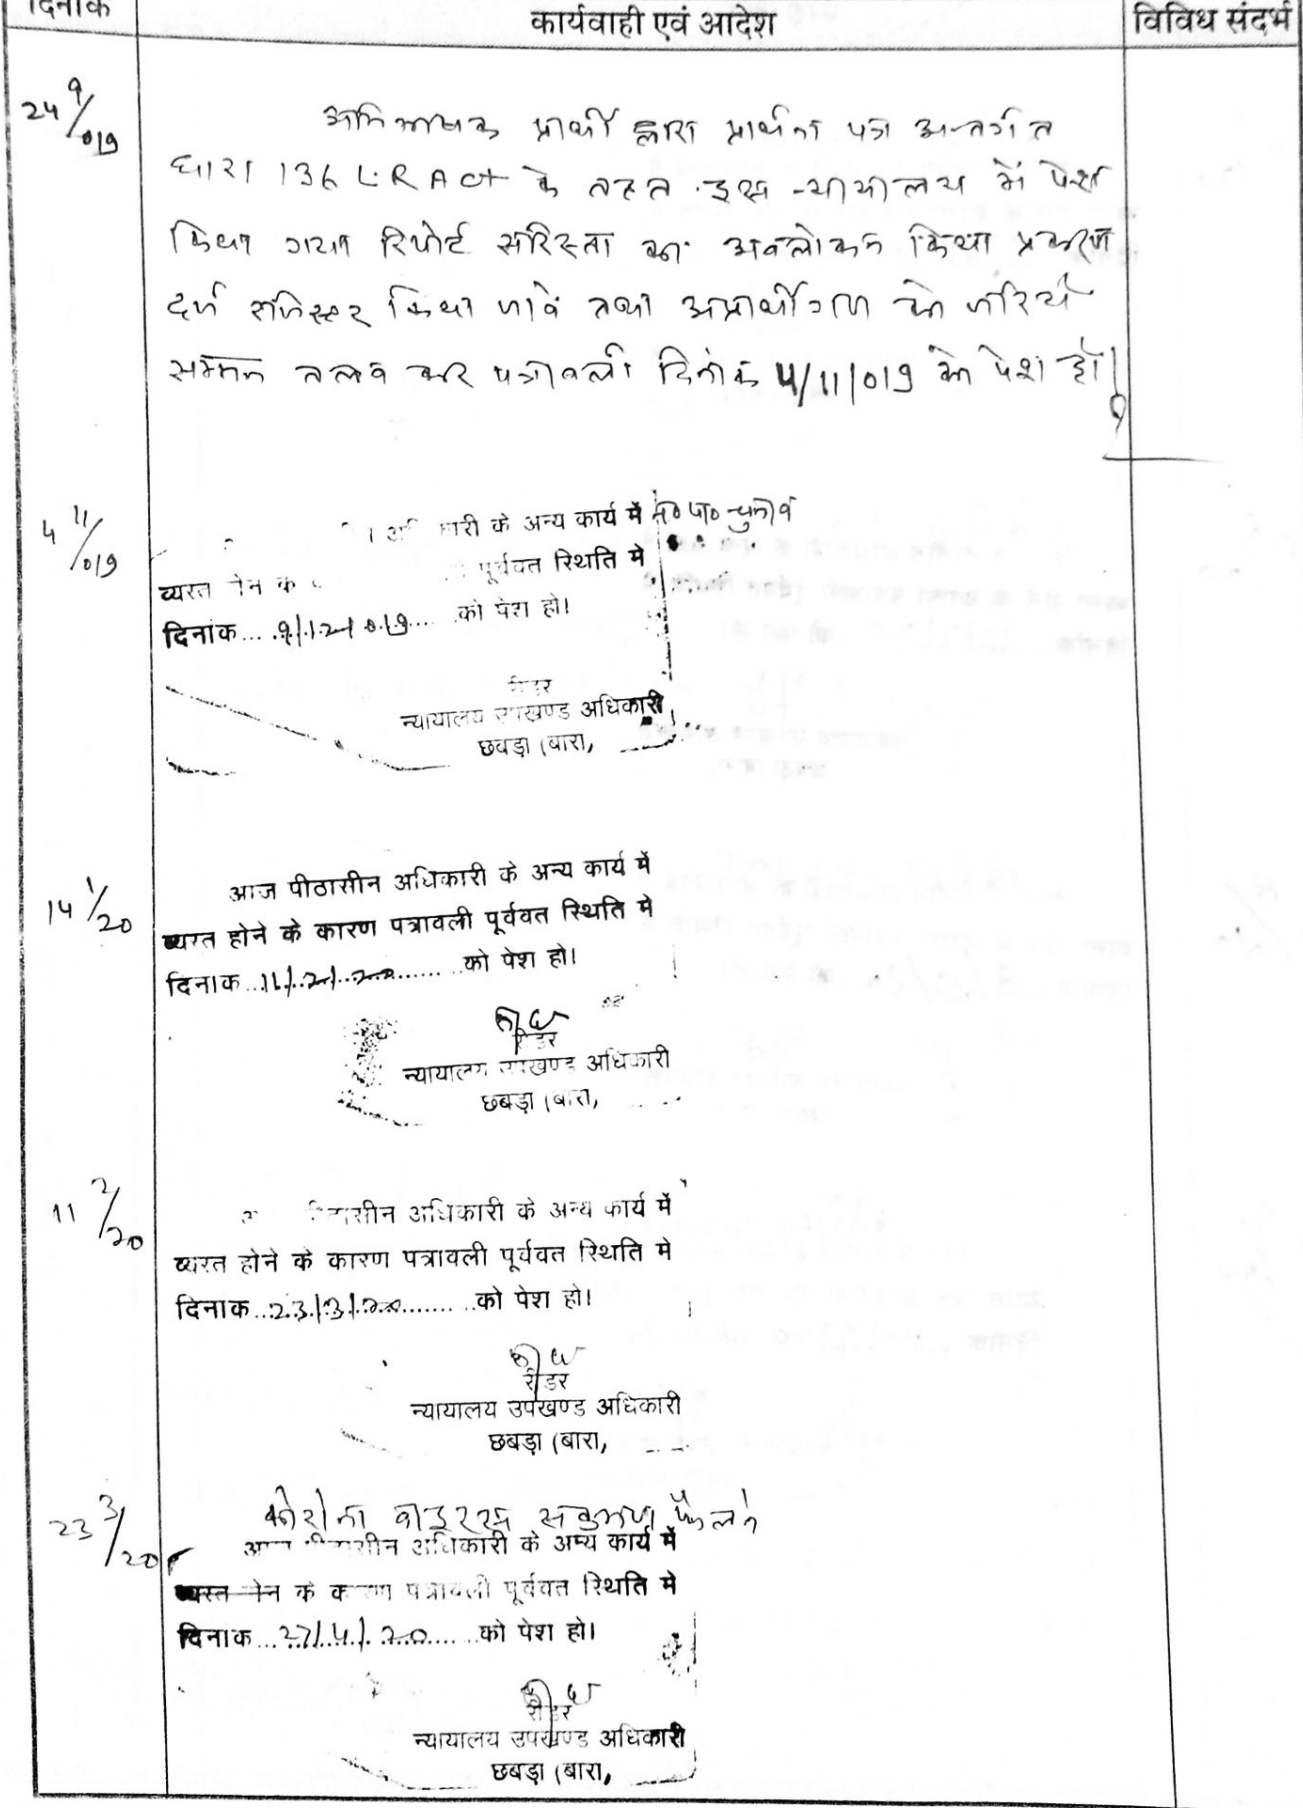 दिनांक
कार्यवाही एवं आदेश
विविध संदर्भ
24/9/019
अभिभाषक प्रार्थी द्वारा प्रार्थना पत्र अन्तर्गत
धारा 136 L.R Act के तहत इस न्यायालय में पेश
किया गया रिपोर्ट सरिस्ता का अवलोकन किया प्रकरण
दर्ज रजिस्टर किया जावे तथा अप्रार्थीगण को जरिये
सम्मन तलब कर पत्रावली दिनांक 4/11/019 को पेश हो।
4/11/019
के अन्य कार्य में न0 पा0 चुनाव
व्यस्त पूर्ववत स्थिति मे
दिनांक....9/12/019.... को पेश हो।
रीडर
न्यायालय उपखण्ड अधिकारी
छबड़ा (बारा,
14/1/20
आज पीठासीन अधिकारी के अन्य कार्य में
व्यस्त होने के कारण पत्रावली पूर्ववत स्थिति मे
दिनांक...11/2/20........ को पेश हो।
रीडर
न्यायालय उपखण्ड अधिकारी
छबड़ा (बारा,
11/2/20
पीठासीन अधिकारी के अन्य कार्य में
व्यस्त होने के कारण पत्रावली पूर्ववत स्थिति मे
दिनांक...23/3/20........ को पेश हो।
रीडर
न्यायालय उपखण्ड अधिकारी
छबड़ा (बारा,
23/3/20
कोरोना वाइरस संक्रमण फैलने
आज पीठासीन अधिकारी के अन्य कार्य में
व्यस्त होने के कारण पत्रावली पूर्ववत स्थिति मे
दिनांक...27/4/20...... को पेश हो।
रीडर
न्यायालय उपखण्ड अधिकारी
छबड़ा (बारा,